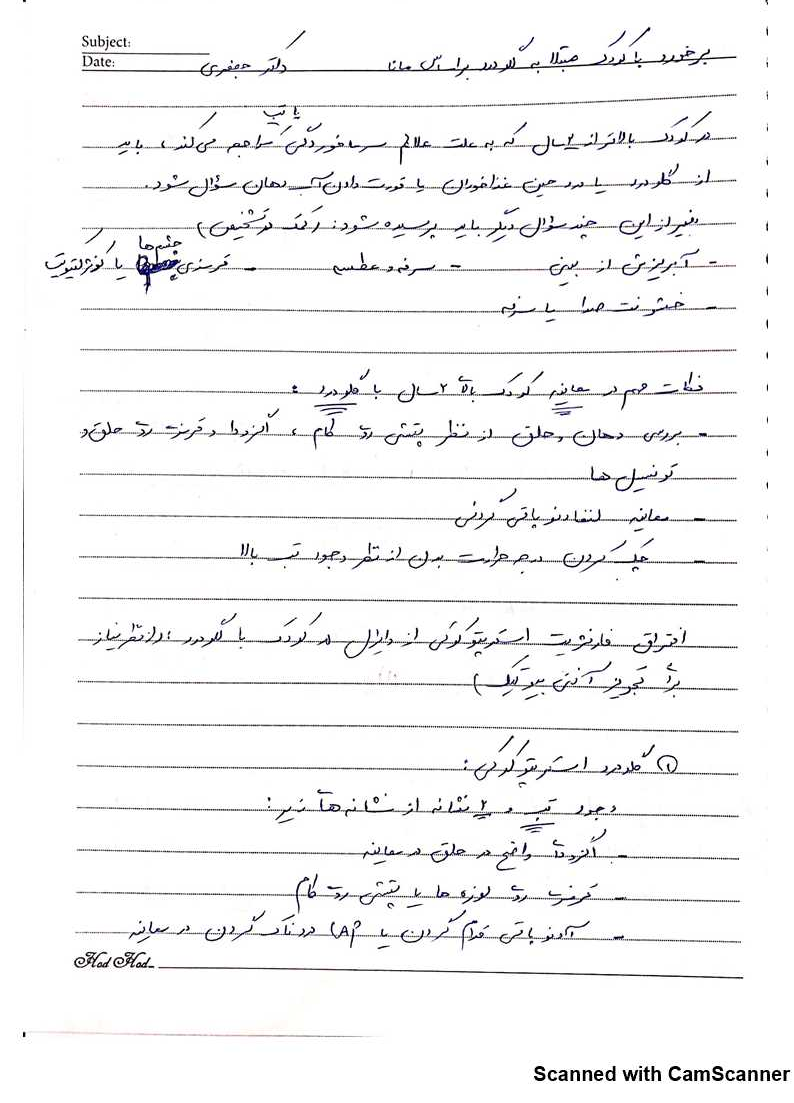 Subject:
Date:
برخورد با کودک مبتلا به گلودرد براساس مانا دکتر جعفری
یا تب
در کودک بالاتر از ۲ سال که به علت علائم سرماخوردگی مراجعه می‌کند، باید
از گلودرد یا درد حین غذا خوردن یا قورت دادن آب دهان سؤال شود.
بغیر از این چند سؤال دیگر باید پرسیده شود: (کمک در تشخیص)
- آبریزش از بینی - سرفه و عطسه - قرمزی چشم‌ها یا کونژنکتیویت
- خشونت صدا یا سرفه
نکات مهم در معاینه کودک بالای ۲ سال با گلودرد:
- بررسی دهان و حلق از نظر پتشی روی کام، اگزودا و قرمزی روی حلق و
تونسیل ها
- معاینه لنفادنوپاتی گردنی
- چک کردن درجه حرارت بدن از نظر وجود تب بالا
افتراق فارنژیت استرپتوکوکی از وایرال در کودک با گلودرد (از نظر نیاز
برای تجویز آنتی بیوتیک)
۱) گلودرد استرپتوکوکی:
وجود تب و ۲ نشانه از نشانه های زیر:
- اگزودای واضح در حلق در معاینه
- قرمزی روی لوزه ها یا پتشی روی کام
- آدنوپاتی قدام گردن یا LAP دردناک گردن در معاینه
Hod Hod
Scanned with CamScanner